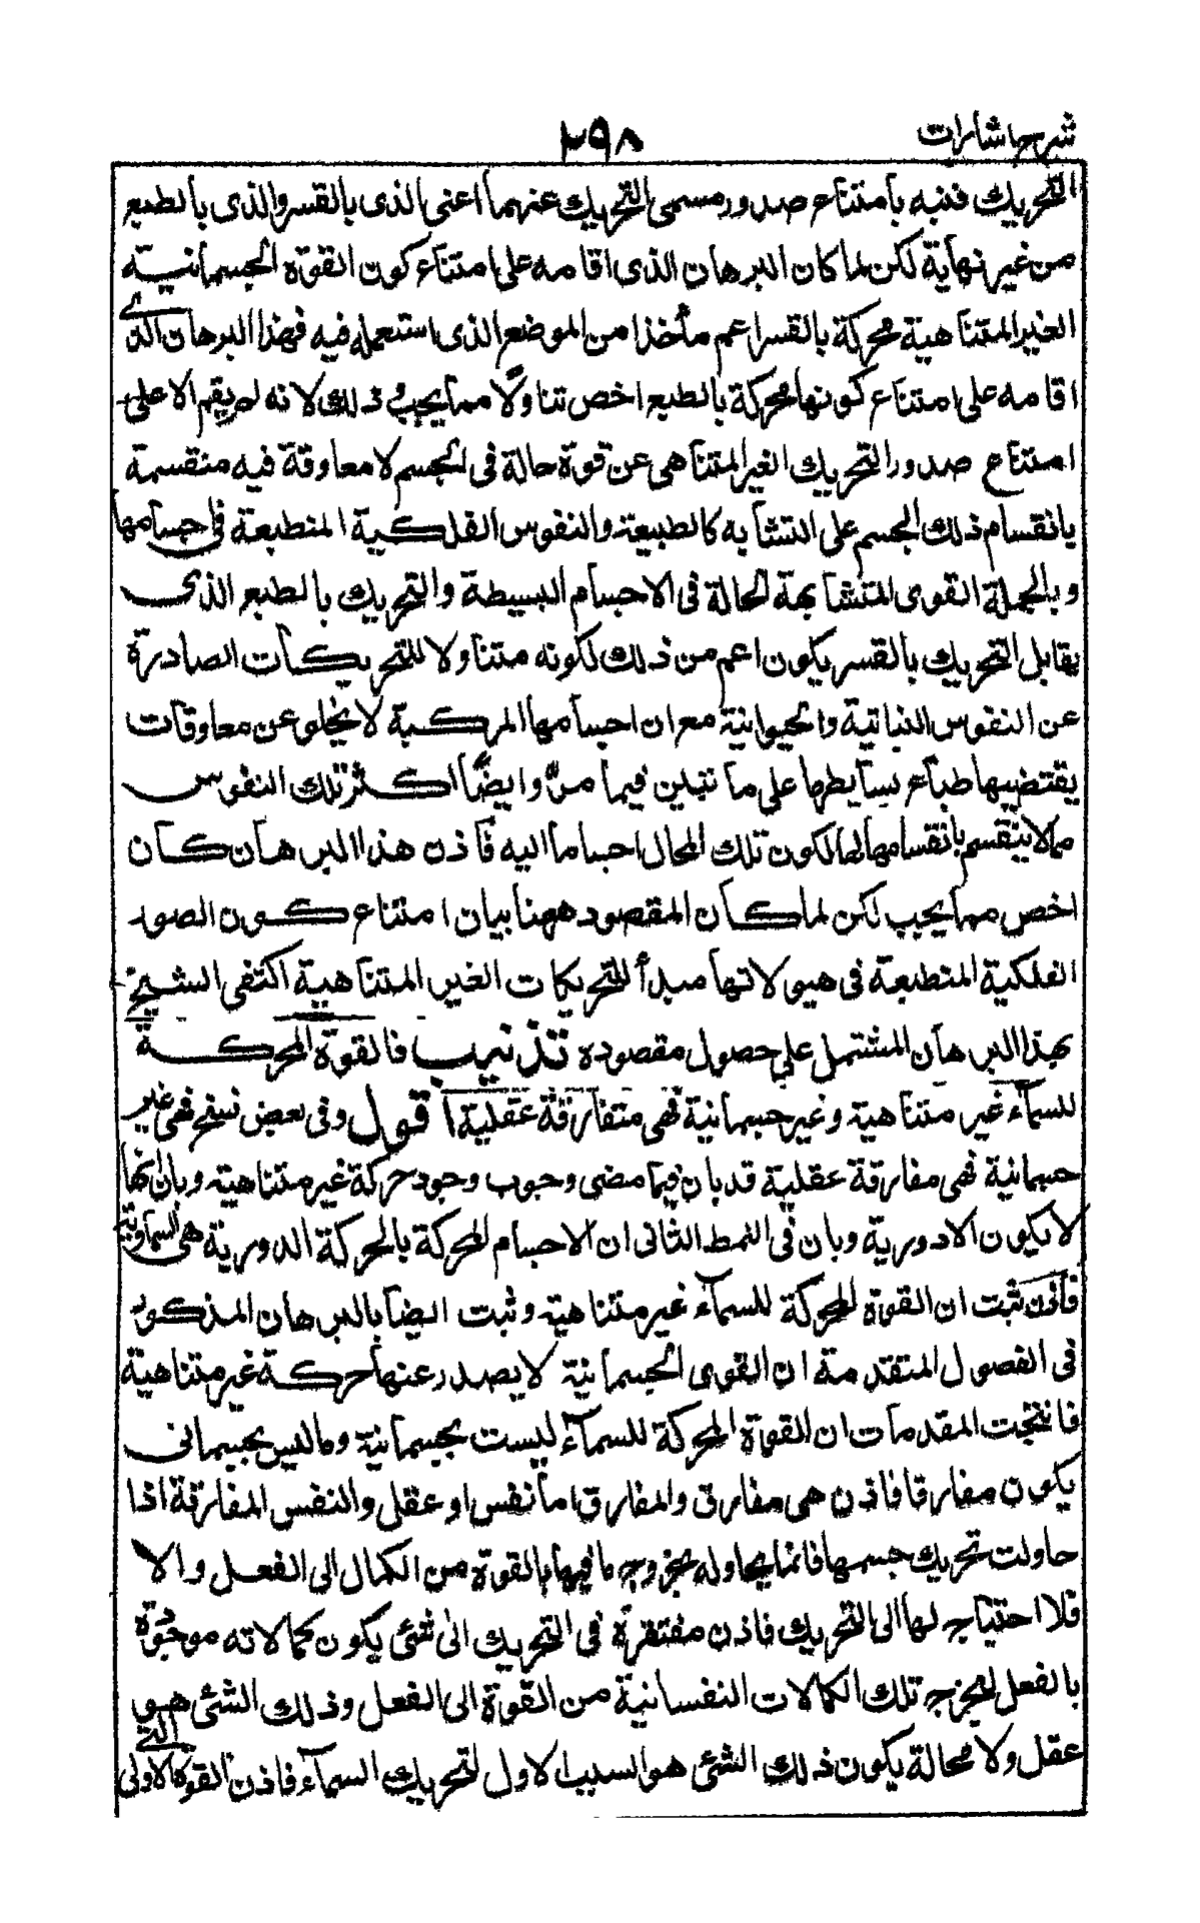 شرح اشارات
٢٩٨
التحريك فنبه بامتناع صدور مسمى التحريك عنهما اعنى الذى بالقسر والذى بالطبع
من غير نهاية لكن لما كان البرهان الذى اقامه على امتناع كون القوة الجسمانية
الغير المتناهية محركة بالقسر اعم مأخذا من الموضع الذى استعمله فيه فهذا البرهان الذى
اقامه على امتناع كونها محركة بالطبع اخص تناولا مما يجب وذلك لانه لم يقم الا على
امتناع صدور التحريك الغير المتناهى عن قوة حالة فى الجسم لا معاوقة فيه منقسمة
بانقسام ذلك الجسم على التشابه كالطبيعة والنفوس الفلكية المنطبعة فى اجسامها
وبالجملة القوى المتشابهة الحالة فى الاجسام البسيطة والتحريك بالطبع الذى
يقابل التحريك بالقسر يكون اعم من ذلك لكونه متناولا للتحريكات الصادرة
عن النفوس النباتية والحيوانية مع ان اجسامها المركبة لا يخلو عن معاوقات
يقتضيها طبائع بسايطها على ما تبين فيما مر وايضا اكثر تلك النفوس
مما لا ينقسم بانقسام محالها لكون تلك المحال اجساما اليه فاذن هذا البرهان كان
اخص مما يجب لكن لما كان المقصود ههنا بيان امتناع كون الصور
الفلكية المنطبعة فى هيولاتها مبدأ للتحريكات الغير المتناهية اكتفى الشيخ
بهذا البرهان المشتمل على حصول مقصوده تذنيب فالقوة المحركة
للسماء غير متناهية وغير جسمانية فهى متفارقة عقلية اقول وفى بعض نسخ فهى غير
جسمانية فهى مفارقة عقلية قد بان فيما مضى وجوب وجود حركة غير متناهية وبان انها
لا يكون الا دورية وبان فى النمط الثانى ان الاجسام المحركة بالحركة الدورية هى السماوية
فاذن ثبت ان القوة المحركة للسماء غير متناهية وثبت ايضا بالبرهان المذكور
فى الفصول المتقدمة ان القوى الجسمانية لا يصدر عنها حركة غير متناهية
فانتجت المقدمات ان القوة المحركة للسماء ليست بجسمانية وما ليس بجسمانى
يكون مفارقا فاذن هى مفارق والمفارق اما نفس او عقل والنفس المفارقة اذا
حاولت تحريك جسمها فانما يحاوله بخروج ما فيها بالقوة من الكمال الى الفعل والا
فلا احتياج لها الى التحريك فاذن مفتقرة فى التحريك الى شئ يكون كمالاته موجودة
بالفعل ليخرج تلك الكمالات النفسانية من القوة الى الفعل وذلك الشئ هو
عقل ولا محالة يكون ذلك الشئ هو السبب الاول لتحريك السماء فاذن القوة الاولى التى